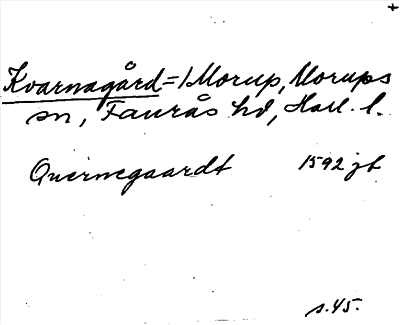 +
Kvarnagård = 1 Morup, Morups
sn, Faurås hd, Hall. l.
Quernegaardt 1592 jb
s. 45.